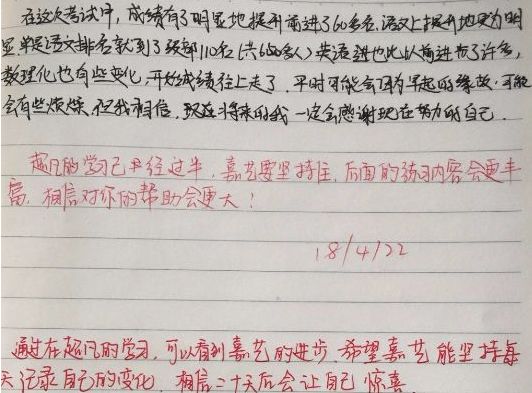 在这次考试中，成绩有了明显地提升前进了60多名，语文上提升地更为明
显单是语文排名就到了级部110名(共600多人)英语进也比以前进步了许多，
数理化也有些变化，开始成绩往上走了．平时可能会因为早起的缘故，可能
会有些烦燥，但我相信，将来的我一定会感谢现在努力的自己．
超凡的学习已经过半，嘉艺要坚持住，后面的练习内容会更丰
富，相信对你的帮助会更大！
18/4/22
通过在超凡的学习，可以看到嘉艺的进步，希望嘉艺能坚持每
天记录自己的变化，相信二十天后会让自己惊喜．